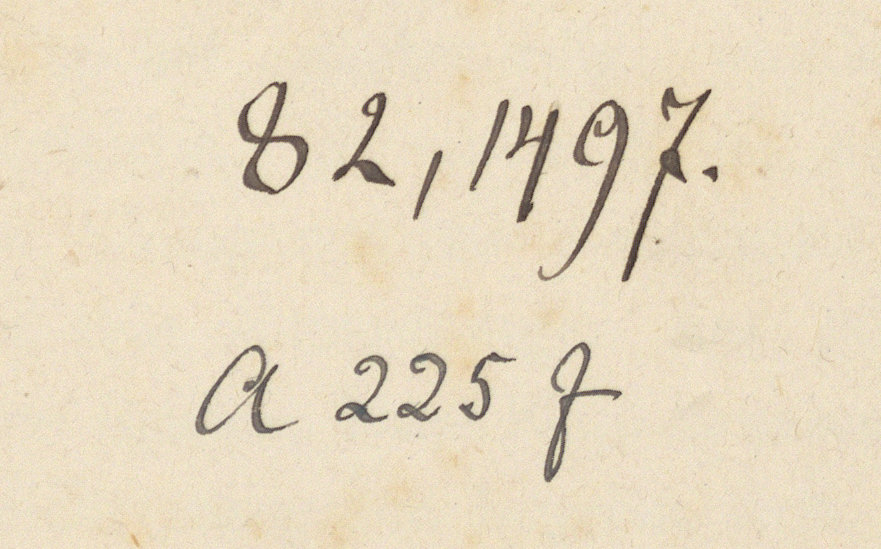 82,1497.
a 225 f